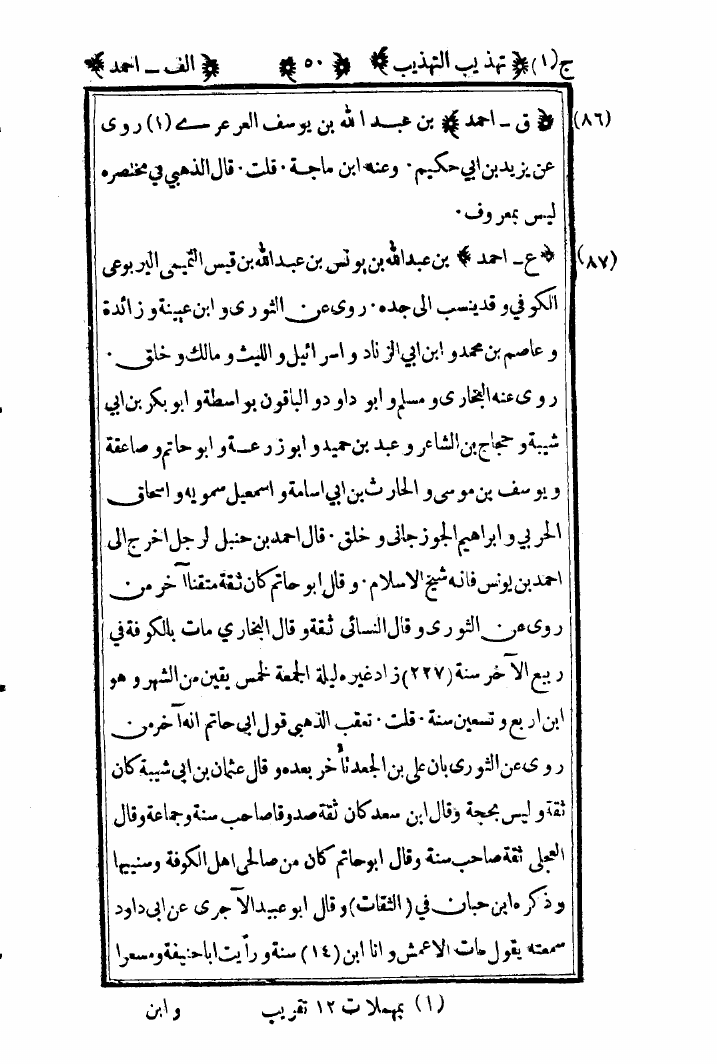 ج(١) ﴿ تهذيب التهذيب ﴾ ﴿ ٥٠ ﴾ ﴿ الف ـ احمد ﴾
(٨٦) ﴿ ق ـ احمد ﴾ بن عبد الله بن يوسف العرعرے (١) روى
عن يزيد بن ابي حكيم ٠ وعنه ابن ماجة ٠ قلت ٠ قال الذهبي في مختصره
ليس بمعروف ٠
(٨٧) ﴿ ع ـ احمد ﴾ بن عبدالله بن يونس بن عبدالله بن قيس التميمى اليربوعى
الكوفي وقد ينسب الى جده ٠ روى عن الثورى وابن عيينة وزائدة
وعاصم بن محمد وابن ابي الزناد واسرائيل والليث ومالك وخلق ٠
روى عنه البخارى ومسلم وابو داود والباقون بواسطة وابو بكر بن ابي
شيبة وحجاج بن الشاعر وعبد بن حميد وابو زرعة وابو حاتم وصاعقة
ويوسف بن موسى والحارث بن ابي اسامة واسمعيل سمويه واسحاق
الحربي وابراهيم الجوزجانى وخلق ٠ قال احمد بن حنبل لرجل اخرج الى
احمد بن يونس فانه شيخ الاسلام ٠ وقال ابو حاتم كان ثقة متقنا آخر من
روى عن الثورى وقال النسائى ثقة وقال البخاري مات بالكوفة في
ربيع الآخر سنة (٢٢٧) زاد غيره ليلة الجمعة لخمس بقين من الشهر وهو
ابن اربع وتسعين سنة ٠ قلت ٠ تعقب الذهبي قول ابى حاتم انه آخر من
روى عن الثورى بان على بن الجعد تأخر بعده وقال عثمان بن ابى شيبة كان
ثقة وليس بحجة وقال ابن سعد كان ثقة صدوقا صاحب سنة وجماعة وقال
العجلى ثقة صاحب سنة وقال ابو حاتم كان من صالحى اهل الكوفة وسنييها
وذكره ابن حبان في (الثقات) وقال ابو عبيد الآجرى عن ابى داود
سمعته يقول مات الاعمش وانا ابن (١٤) سنة ورأيت اباحنيفة ومسعرا
(١) بمهملات ١٢ تقريب
وابن